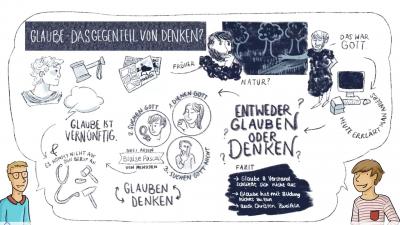 GLAUBE - DAS GEGENTEIL VON DENKEN?
FRÜHER
NATUR?
DAS WAR
GOTT
HEUTE ERKLÄRT MAN
GLAUBE IST
VERNÜNFTIG.
ES KOMMT NICHT AUF
1. DIENEN GOTT
2. SUCHEN GOTT
3. SUCHEN GOTT NICHT
DREI ARTEN
Blaise Pascal
VON MENSCHEN
GLAUBEN
DENKEN
ENTWEDER
GLAUBEN
ODER
DENKEN?
FAZIT
→ Glaube & Verstand
schließt sich nicht aus
→ Glaube hat mit Bildung
nichts zu tun